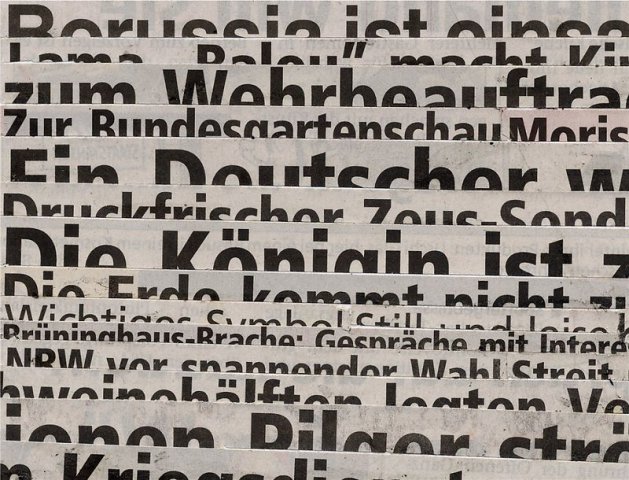 Borussia ist einsa
Lama „Balou” macht Ki
zum Wehrbeauftra
Zur Bundesgartenschau Moris
Ein Deutscher w
Druckfrischer Zeus-Sond
Die Königin ist z
Die Erde kommt nicht zu
Wichtiges Symbo Still und leise
Brüninghaus-Brache: Gespräche mit Intere
NRW vor spannender Wahl Streit
hweinehälften legten Ve
ionen Pilger strö
m Kriegsdienst